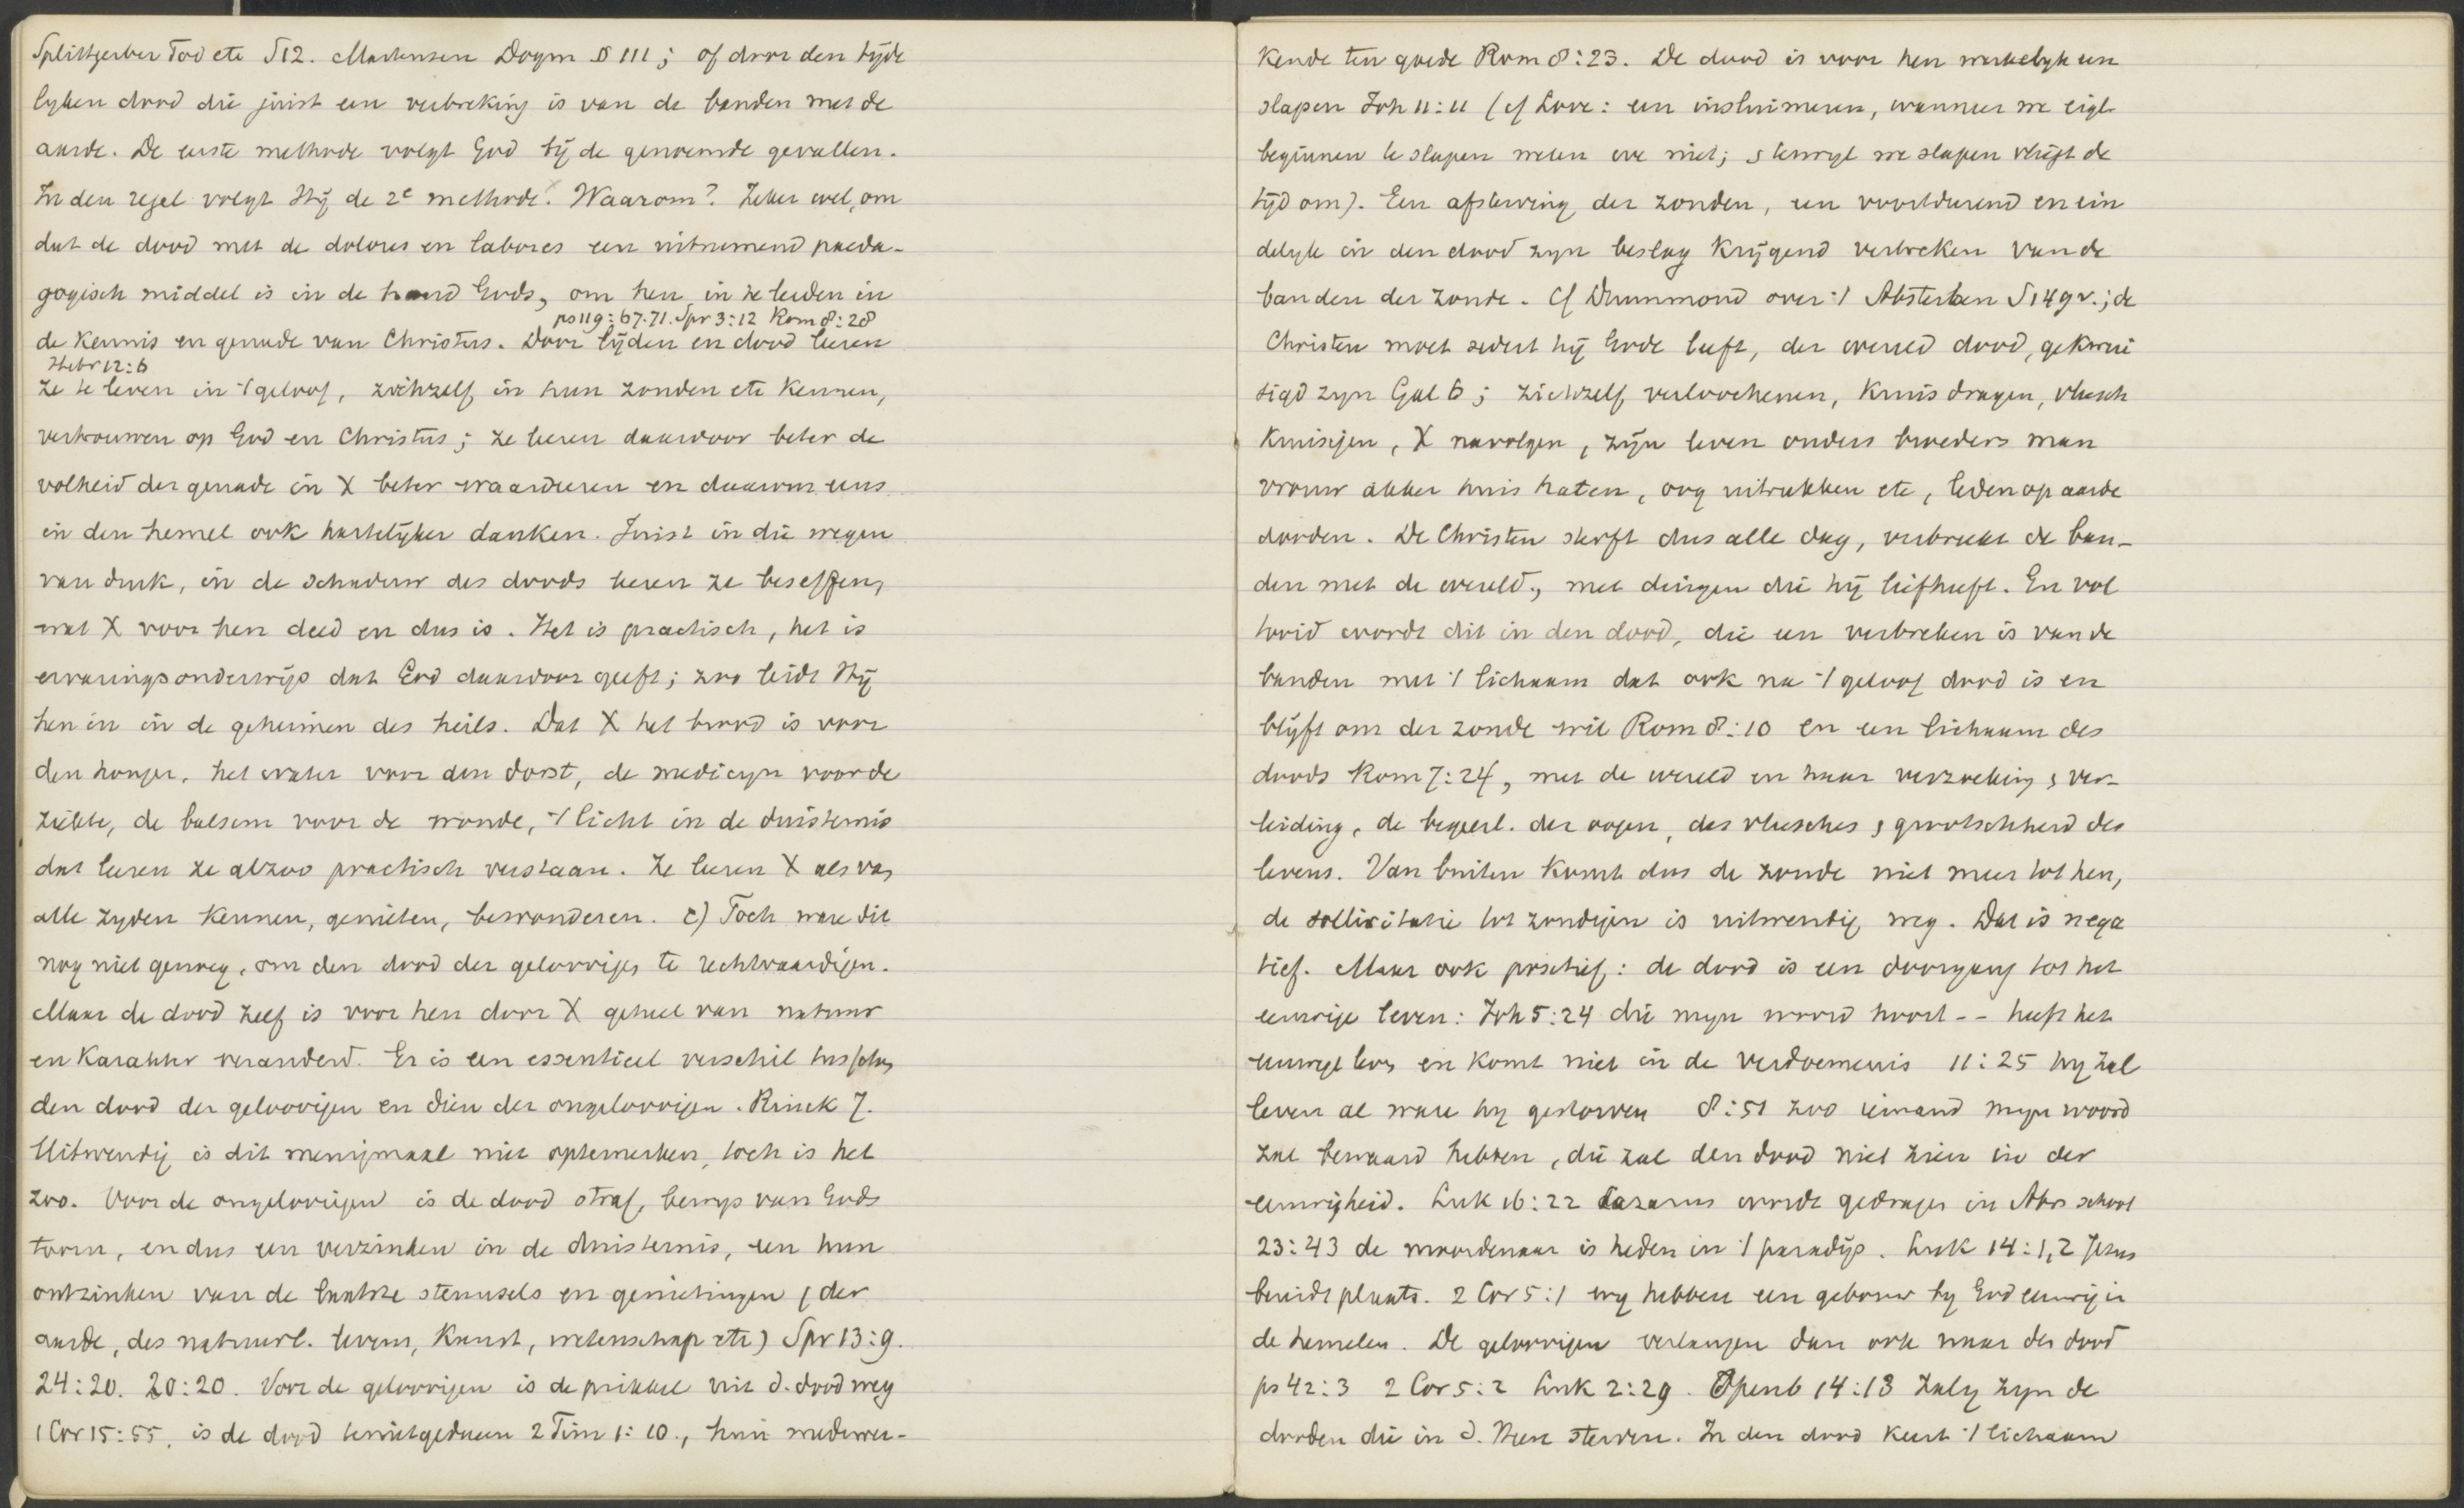 Splittgerber Tod etc S12. Martensen Dogm § 111; of door den tijde
lyken dood die juist een verbreking is van de banden met de
aarde. De eerste methode volgt God bij de genoemde gevallen.
In den regel volgt Hij de 2e methode. Waarom? Zeker wel, om
dat de dood met de dolores en labores een uitnemend paeda-
gogisch middel is in de hand Gods, om hen in te leiden in
ps 119:67.71. Spr 3:12 Rom 8:28
de kennis en genade van Christus. Door lijden en dood leeren
Hebr 12:6
ze te leven in 't geloof, zichzelf in hun zonden etc kennen,
vertrouwen op God en Christus; ze leeren daardoor beter de
volheid der genade in X beter waardeeren en daarom eens
in den hemel ook hartelijker danken. Juist in die wegen
van druk, in de schaduw des doods leeren ze beseffen,
wat X voor hen deed en dus is. Het is practisch, het is
ervaringsonderwijs dat God daardoor geeft; zoo leidt Hij
hen in in de geheimen des heils. Dat X het brood is voor
den honger, het water voor den dorst, de medicyn voor de
ziekte, de balsem voor de wonde, 't licht in de duisternis
dat leeren ze alzoo practisch verstaan. Ze leeren X als van
alle zyden kennen, genieten, bewonderen. c) Toch ware dit
nog niet genoeg, om den dood der geloovigen te rechtvaardigen.
Maar de dood zelf is voor hen door X geheel van natuur
en karakter veranderd. Er is een essentieel verschil tusschen
den dood der geloovigen en dien der ongeloovigen. Rinck 7.
Uitwendig is dit menigmaal niet optemerken, toch is het
zoo. Voor de ongeloovigen is de dood straf, bewys van Gods
toorn, en dus een verzinken in de duisternis, een hun
ontzinken van de laatste steunsels en genietingen (der
aarde, des natuurl. levens, kunst, wetenschap etc) Spr 13:9.
24:20. 20:20. Voor de geloovigen is de prikkel uit d. dood weg
1 Cor 15:55, is de dood tenietgedaan 2 Tim 1:10., hun medewer-
kende ten goede Rom 8:23. De dood is voor hen werkelyk een
slapen Joh 11:11 (cf Love: een insluimeren, wanneer we eigl.
beginnen te slapen weten we niet; & terwyl we slapen vliegt de
tijd om). Een afsterving der zonden, een voortdurend en ein
delyk in den dood zyn beslag krijgend verbreken van de
banden der zonde. Cf Drummond over 't Absterben S149v.; de
Christen moet sedert hij Gode leeft, der wereld dood, gekrui
sigd zyn Gal 6; zichzelf verloochenen, kruis dragen, vleesch
kruisigen, X navolgen, zijn leven ouders broeders man
vrouw akker huis haten, oog uitrukken etc, leden op aarde
dooden. De Christen sterft dus alle dag, verbreekt de ban-
den met de wereld, met dingen die hij liefheeft. En vol
tooid wordt dit in den dood, die een verbreken is van de
banden met 't lichaam dat ook na 't geloof dood is en
blijft om der zonde wil Rom 8:10 en een lichaam des
doods Rom 7:24, met de wereld en haar verzoeking & ver-
leiding, de begeerl. der oogen, des vleesches & grootschheid des
levens. Van buiten komt dus de zonde niet meer tot hen,
de sollicitatie tot zondigen is uitwendig weg. Dat is nega
tief. Maar ook positief: de dood is een doorgang tot het
eeuwige leven: Joh 5:24 die mijn woord hoort -- heeft het
eeuwige leven en komt niet in de verdoemenis 11:25 hy zal
leven al ware hy gestorven 8:51 zoo iemand myn woord
zal bewaard hebben, die zal den dood niet zien in der
eeuwigheid. Luk 16:22 Lazarus wordt gedragen in Abrs schoot
23:43 de moordenaar is heden in 't paradijs. Luk 14:1,2 Jezus
bereidt plaats. 2 Cor 5:1 wy hebben een gebouw by God eeuwig in
de hemelen. De geloovigen verlangen dan ook naar den dood
ps 42:3 2 Cor 5:2 Luk 2:29. Openb 14:13 Zalig zyn de
dooden die in d. Heer sterven. In den dood keert 't lichaam